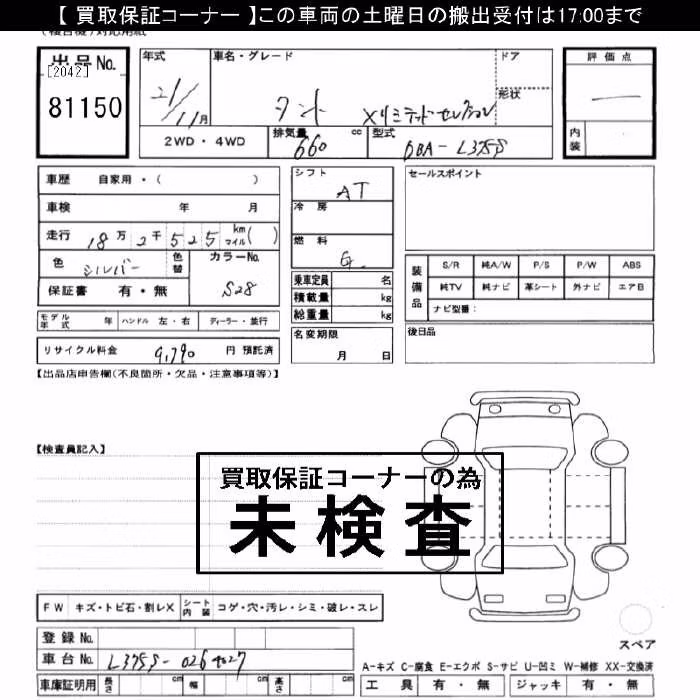 【 買取保証コーナー 】この車両の土曜日の搬出受付は17:00まで
出品 No.
[2042]
81150
年式
21/11月
車名・グレード
タント Xリミテッドセレクション
ドア
形状
2WD・4WD
排気量 cc
660
型式
DBA-L375S
評価点
内装
車歴 自家用・( )
車検 年 月
走行 18万 2千 525 km マイル( )
色 シルバー
色替
カラーNo.
S28
保証書 有・無
シフト
AT
冷房
燃料
G
乗車定員 名
積載量 kg
総重量 kg
セールスポイント
装備品
S/R 純A/W P/S P/W ABS
純TV 純ナビ 革シート 外ナビ エアB
ナビ型番：
モデル年式 年 ハンドル 左・右 ディーラー・並行
名変期限
月 日
後日品
リサイクル料金 9,790 円 預託済
【出品店申告欄(不良箇所・欠品・注意事項等)】
【検査員記入】
買取保証コーナーの為
未検査
FW キズ・トビ石・割レX シート内装 コゲ・穴・汚レ・シミ・破レ・スレ
登録 No.
車台 No. L375S-0264027
車庫証明用 長さ cm 幅 cm 高さ cm
スペア
A-キズ C-腐食 E-エクボ S-サビ U-凹ミ W-補修 XX-交換済
工具 有・無 ジャッキ 有・無